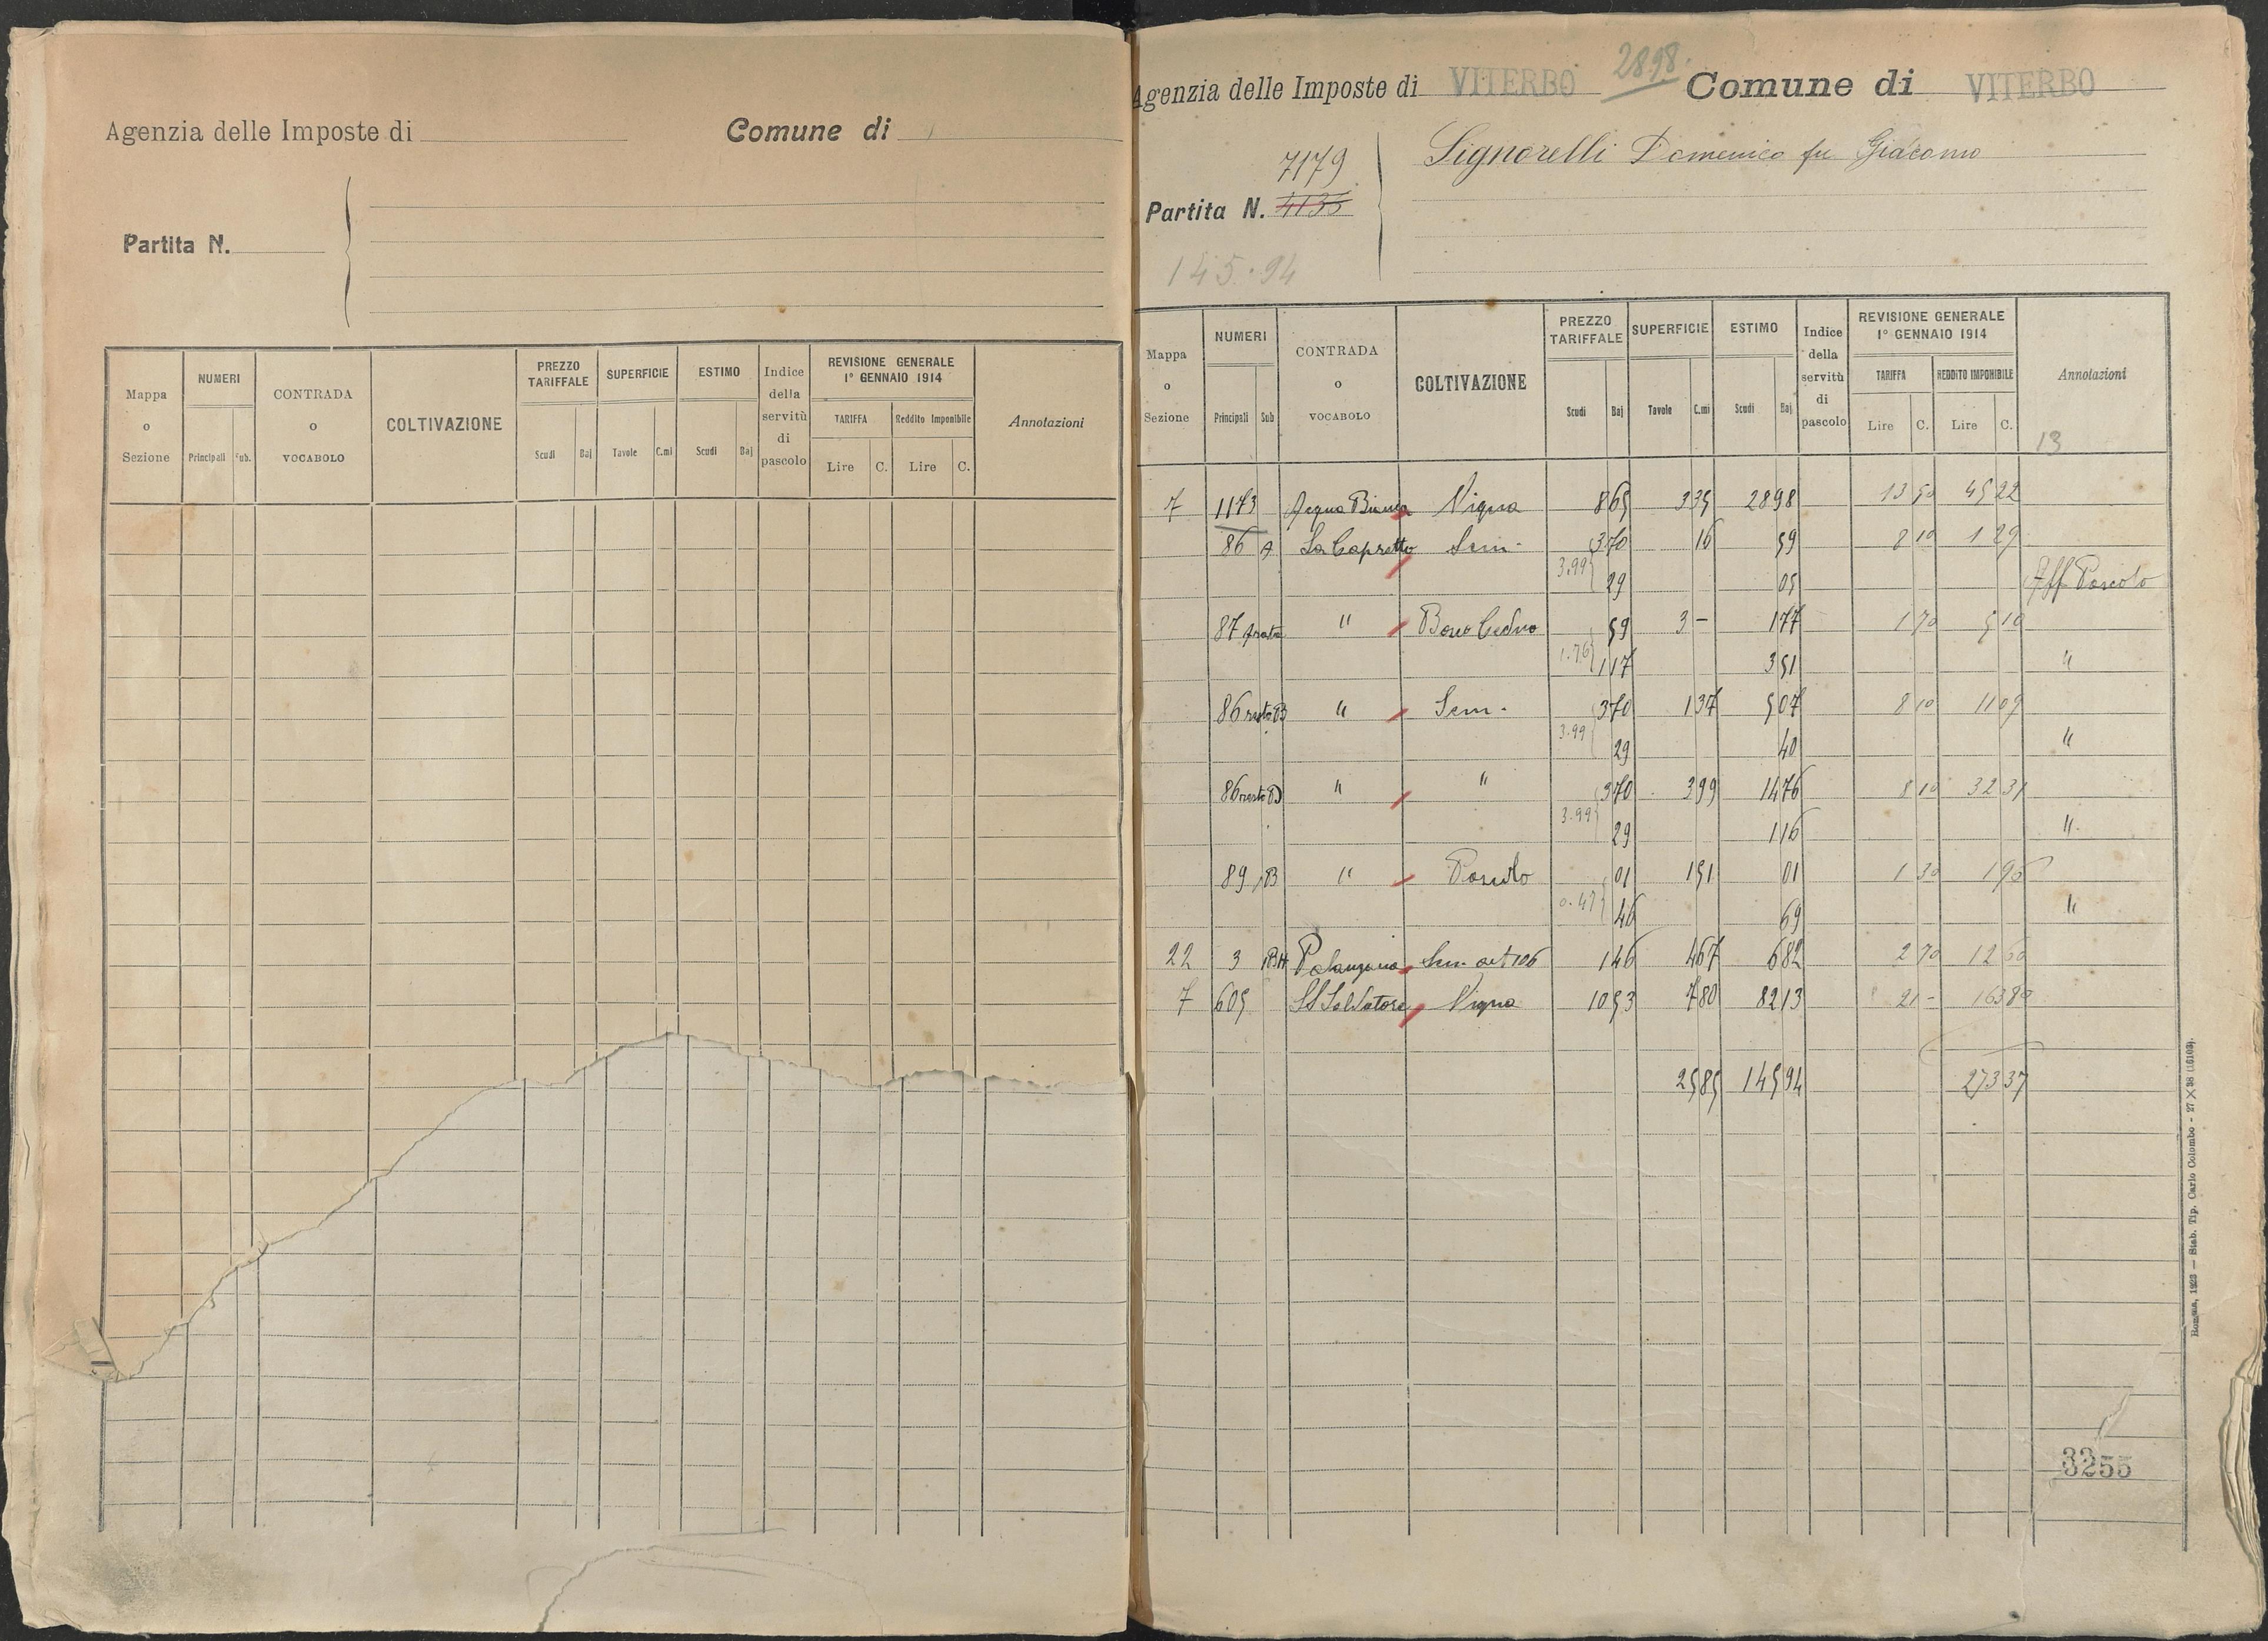 Agenzia delle Imposte di Comune di
Partita N.
Mappa o Sezione NUMERI Principali Sub. CONTRADA o VOCABOLO COLTIVAZIONE PREZZO TARIFFALE Scudi Baj SUPERFICIE Tavole C.mi ESTIMO Scudi Baj Indice della servitù di pascolo REVISIONE GENERALE 1° GENNAIO 1914 TARIFFA Lire C. Reddito Imponibile Lire C. Annotazioni
2898.
Agenzia delle Imposte di VITERBO Comune di VITERBO
Signorelli Domenico fu Giacomo
7179
Partita N. 4135
145.94
Mappa o Sezione NUMERI Principali Sub CONTRADA o VOCABOLO COLTIVAZIONE PREZZO TARIFFALE Scudi Baj SUPERFICIE Tavole C.mi ESTIMO Scudi Baj Indice della servitù di pascolo REVISIONE GENERALE 1° GENNAIO 1914 TARIFFA Lire C. REDDITO IMPONIBILE Lire C. Annotazioni
13
7 1173 Acqua Bianca Vigna 8 65 3 35 28 98 13 50 45 22
86 A La Capretta Sem. 3 70 16 59 8 10 1 29
3.99 29 05 Aff Pascolo
87 " Bosco Ceduo 59 3 - 1 77 1 70 5 10
1.76 1 17 3 51 "
86 resto B " Sem. 3 70 1 37 5 07 8 10 11 09
3.99 29 40 "
86 resto B " " 3 70 3 99 14 76 8 10 32 31
3.99 29 1 16 "
89 B " Pascolo 01 1 51 01 1 30 1 96
0.47 46 69 "
22 3 Palanzana Sem. art 106 1 46 4 67 6 82 2 70 12 60
7 605 SS Salvatore Vigna 10 53 7 80 82 13 21 - 163 80
25 85 145 94 273 37
3255
Roma, 1923 — Stab. Tip. Carlo Colombo - 27 X 38 (16103).